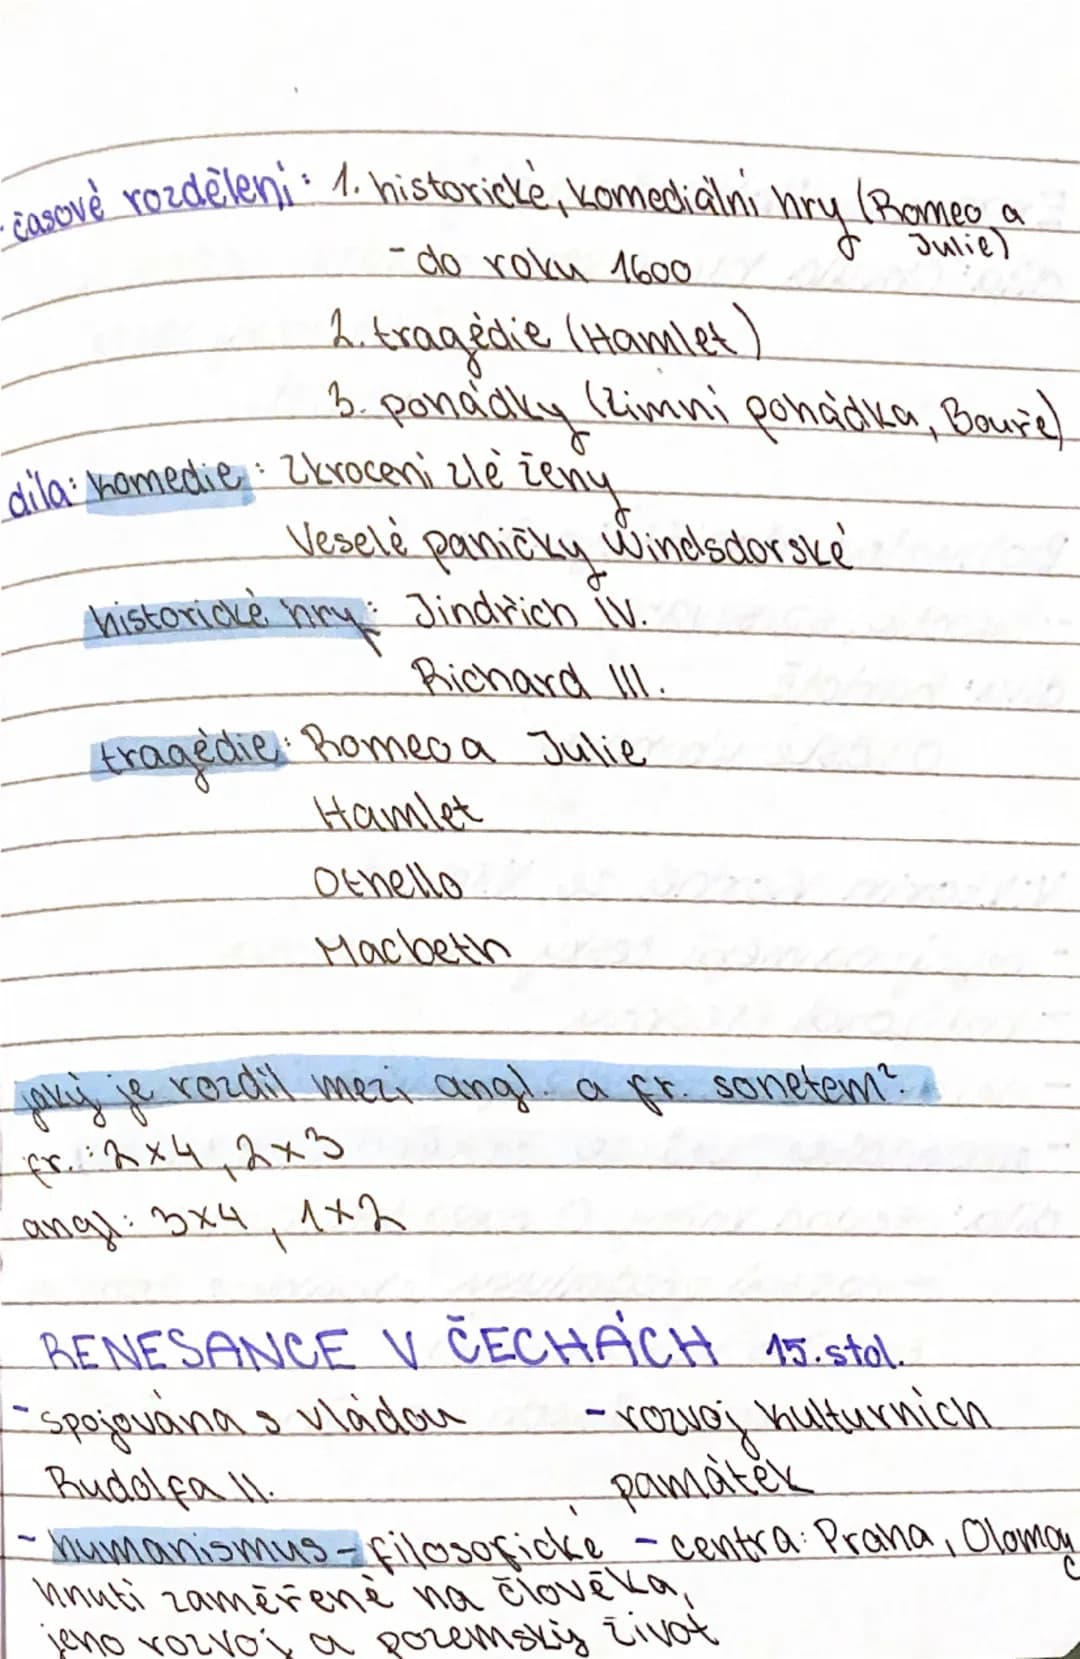 - časové rozdělení: 1. historické, komediální hry (Romeo a Julie)
- do roku 1600
2. tragédie (Hamlet)
3. pohádky (Zimní pohádka, Bouře)
díla: komedie: Zkrocení zlé ženy
Veselé paničky Windsdorské
historické hry: Jindřich IV.
Richard III.
tragédie: Romeo a Julie
Hamlet
Othello
Macbeth
jaký je rozdíl mezi angl. a fr. sonetem?
fr.: 2x4, 2x3
angl: 3x4, 1x2
RENESANCE V ČECHÁCH 15. stol.
- spojována s vládou - rozvoj kulturních
Rudolfa II. památek
- humanismus - filosofické - centra: Praha, Olomouc
hnutí zaměřené na člověka,
jeho rozvoj a pozemský život